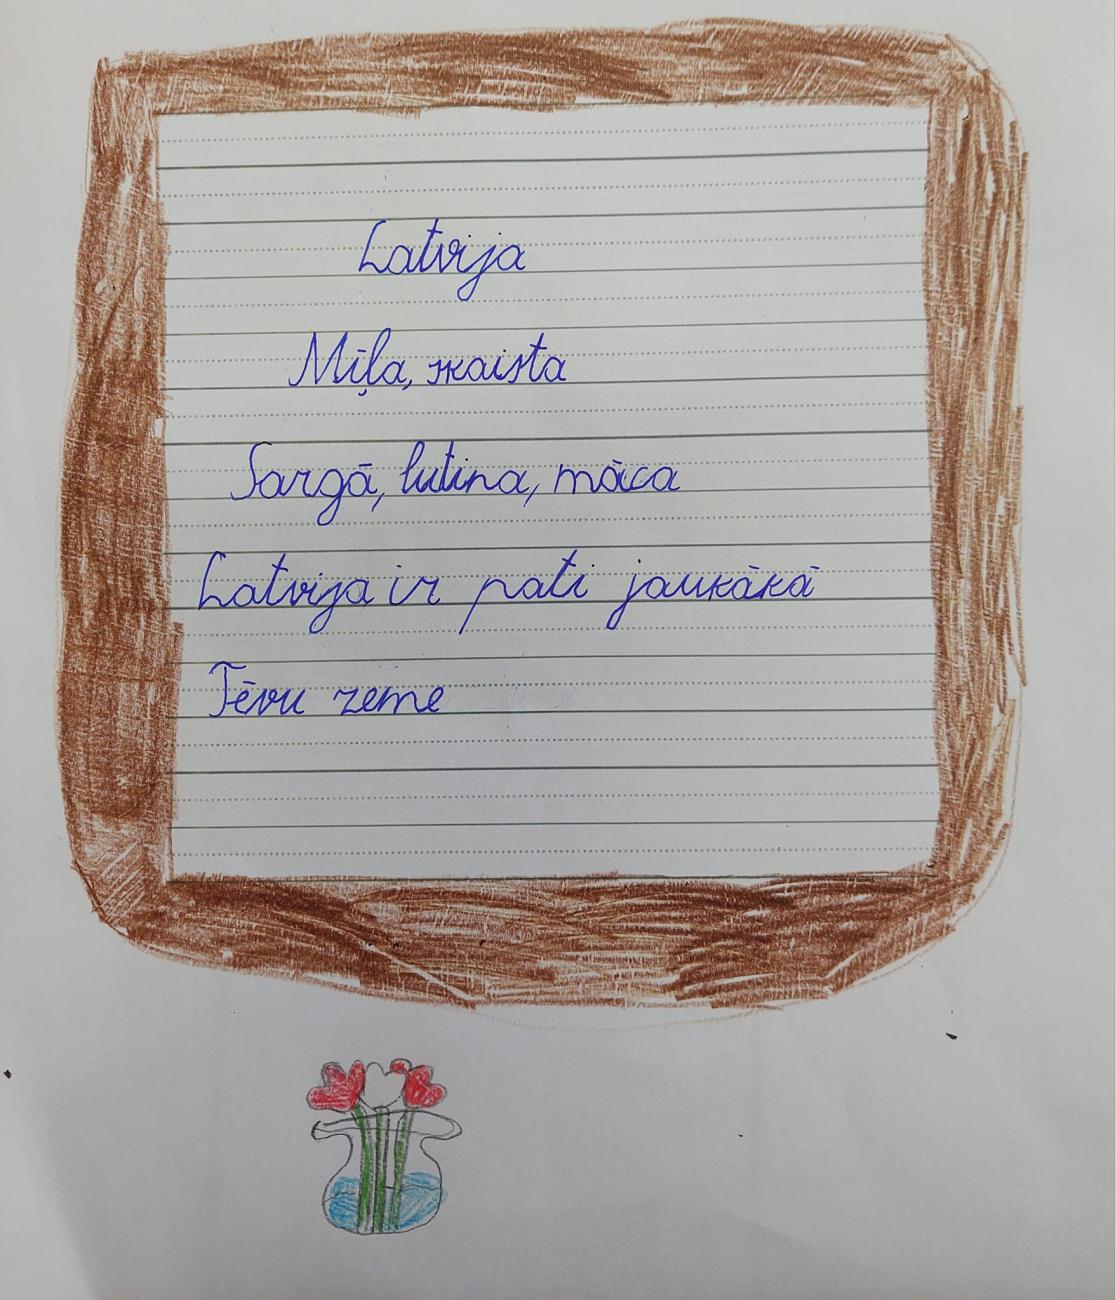 Latvija
Mīļa, skaista
Sargā, lutina, māca
Latvija ir pati jaukākā
Tēvu zeme